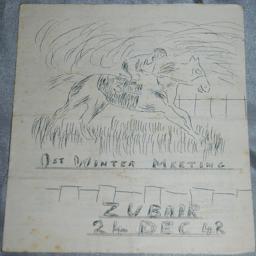 1ST WINTER MEETING
ZUBAIR
24TH DEC 42